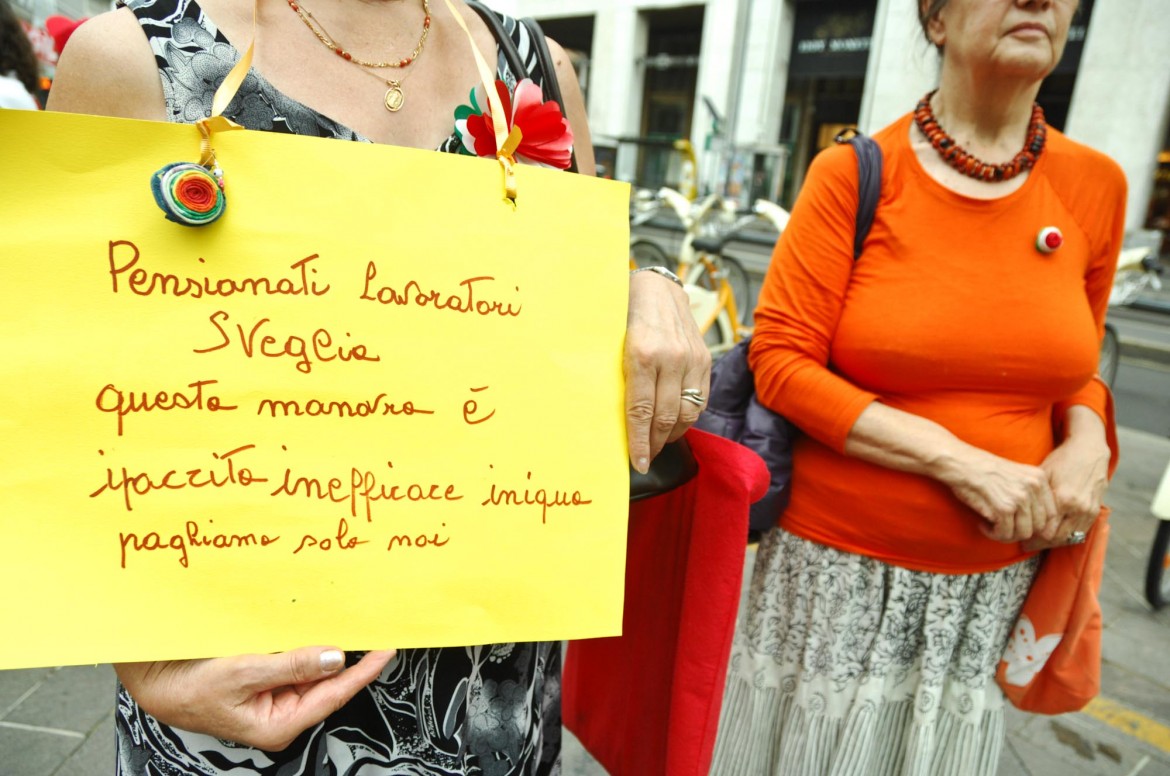 Pensionati Lavoratori
SVeglia
questa manovra è
ipocrita inefficace iniqua
paghiamo solo noi